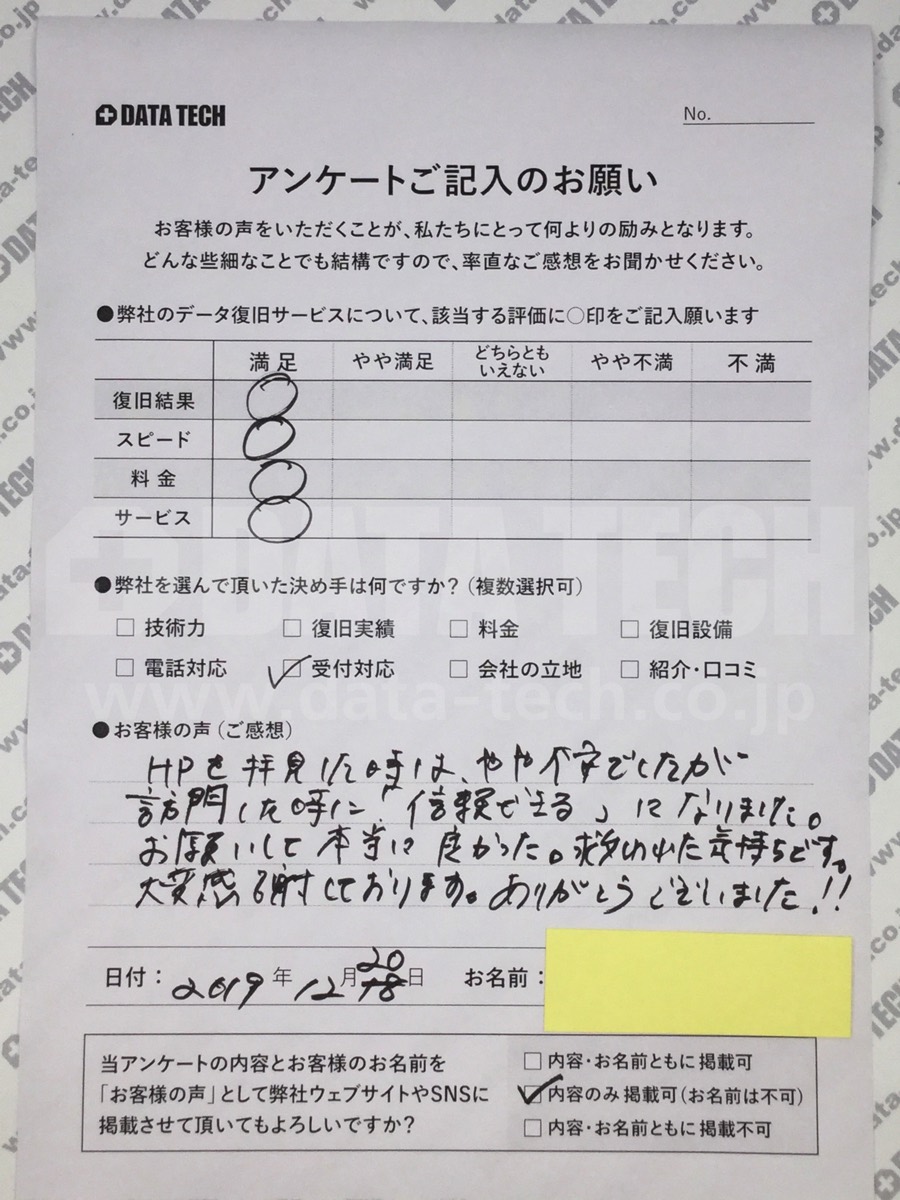 DATA TECH
No.
アンケートご記入のお願い
お客様の声をいただくことが、私たちにとって何よりの励みとなります。
どんな些細なことでも結構ですので、率直なご感想をお聞かせください。
●弊社のデータ復旧サービスについて、該当する評価に○印をご記入願います
満足 やや満足 どちらとも いえない やや不満 不満
復旧結果 ○
スピード ○
料金 ○
サービス ○
●弊社を選んで頂いた決め手は何ですか?(複数選択可)
□ 技術力 □ 復旧実績 □ 料金 □ 復旧設備
□ 電話対応 ☑ 受付対応 □ 会社の立地 □ 紹介・口コミ
www.data-tech.co.jp
●お客様の声(ご感想)
HPを拝見した時は、やや不安でしたが
訪問した時に「信頼できる」になりました。
お願いして本当に良かった。救われた気持ちです。
大変感謝しております。ありがとうございました!!
日付: 2019年 12月 20 18日 お名前:
当アンケートの内容とお客様のお名前を
「お客様の声」として弊社ウェブサイトやSNSに
掲載させて頂いてもよろしいですか?
□ 内容・お名前ともに掲載可
☑ 内容のみ掲載可(お名前は不可)
□ 内容・お名前ともに掲載不可